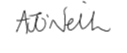 A O'Neill